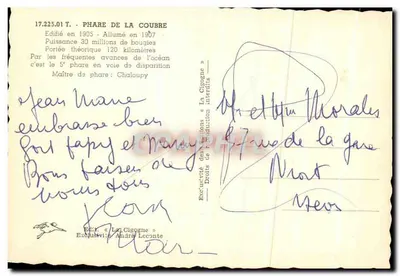 17.225.01 T. - PHARE DE LA COUBRE
Edifié en 1905 - Allumé en 1907
Puissance 20 millions de bougies
Portée théorique 120 kilomètres
Par les fréquentes avances de l'océan
c'est le 5e phare en voie de disparition
Maître de phare : Chalanpy
Jean Marie
embrasse bien
fort papy et mamy
Bons baisers de
nous tous
Jean
Edit. « La Cigogne »
Exclusivité André Leconte
Exclusivité des Editions « La Cigogne »
Droits de reproduction interdits
Mr et Mme Morales
97 rue de la gare
Niort